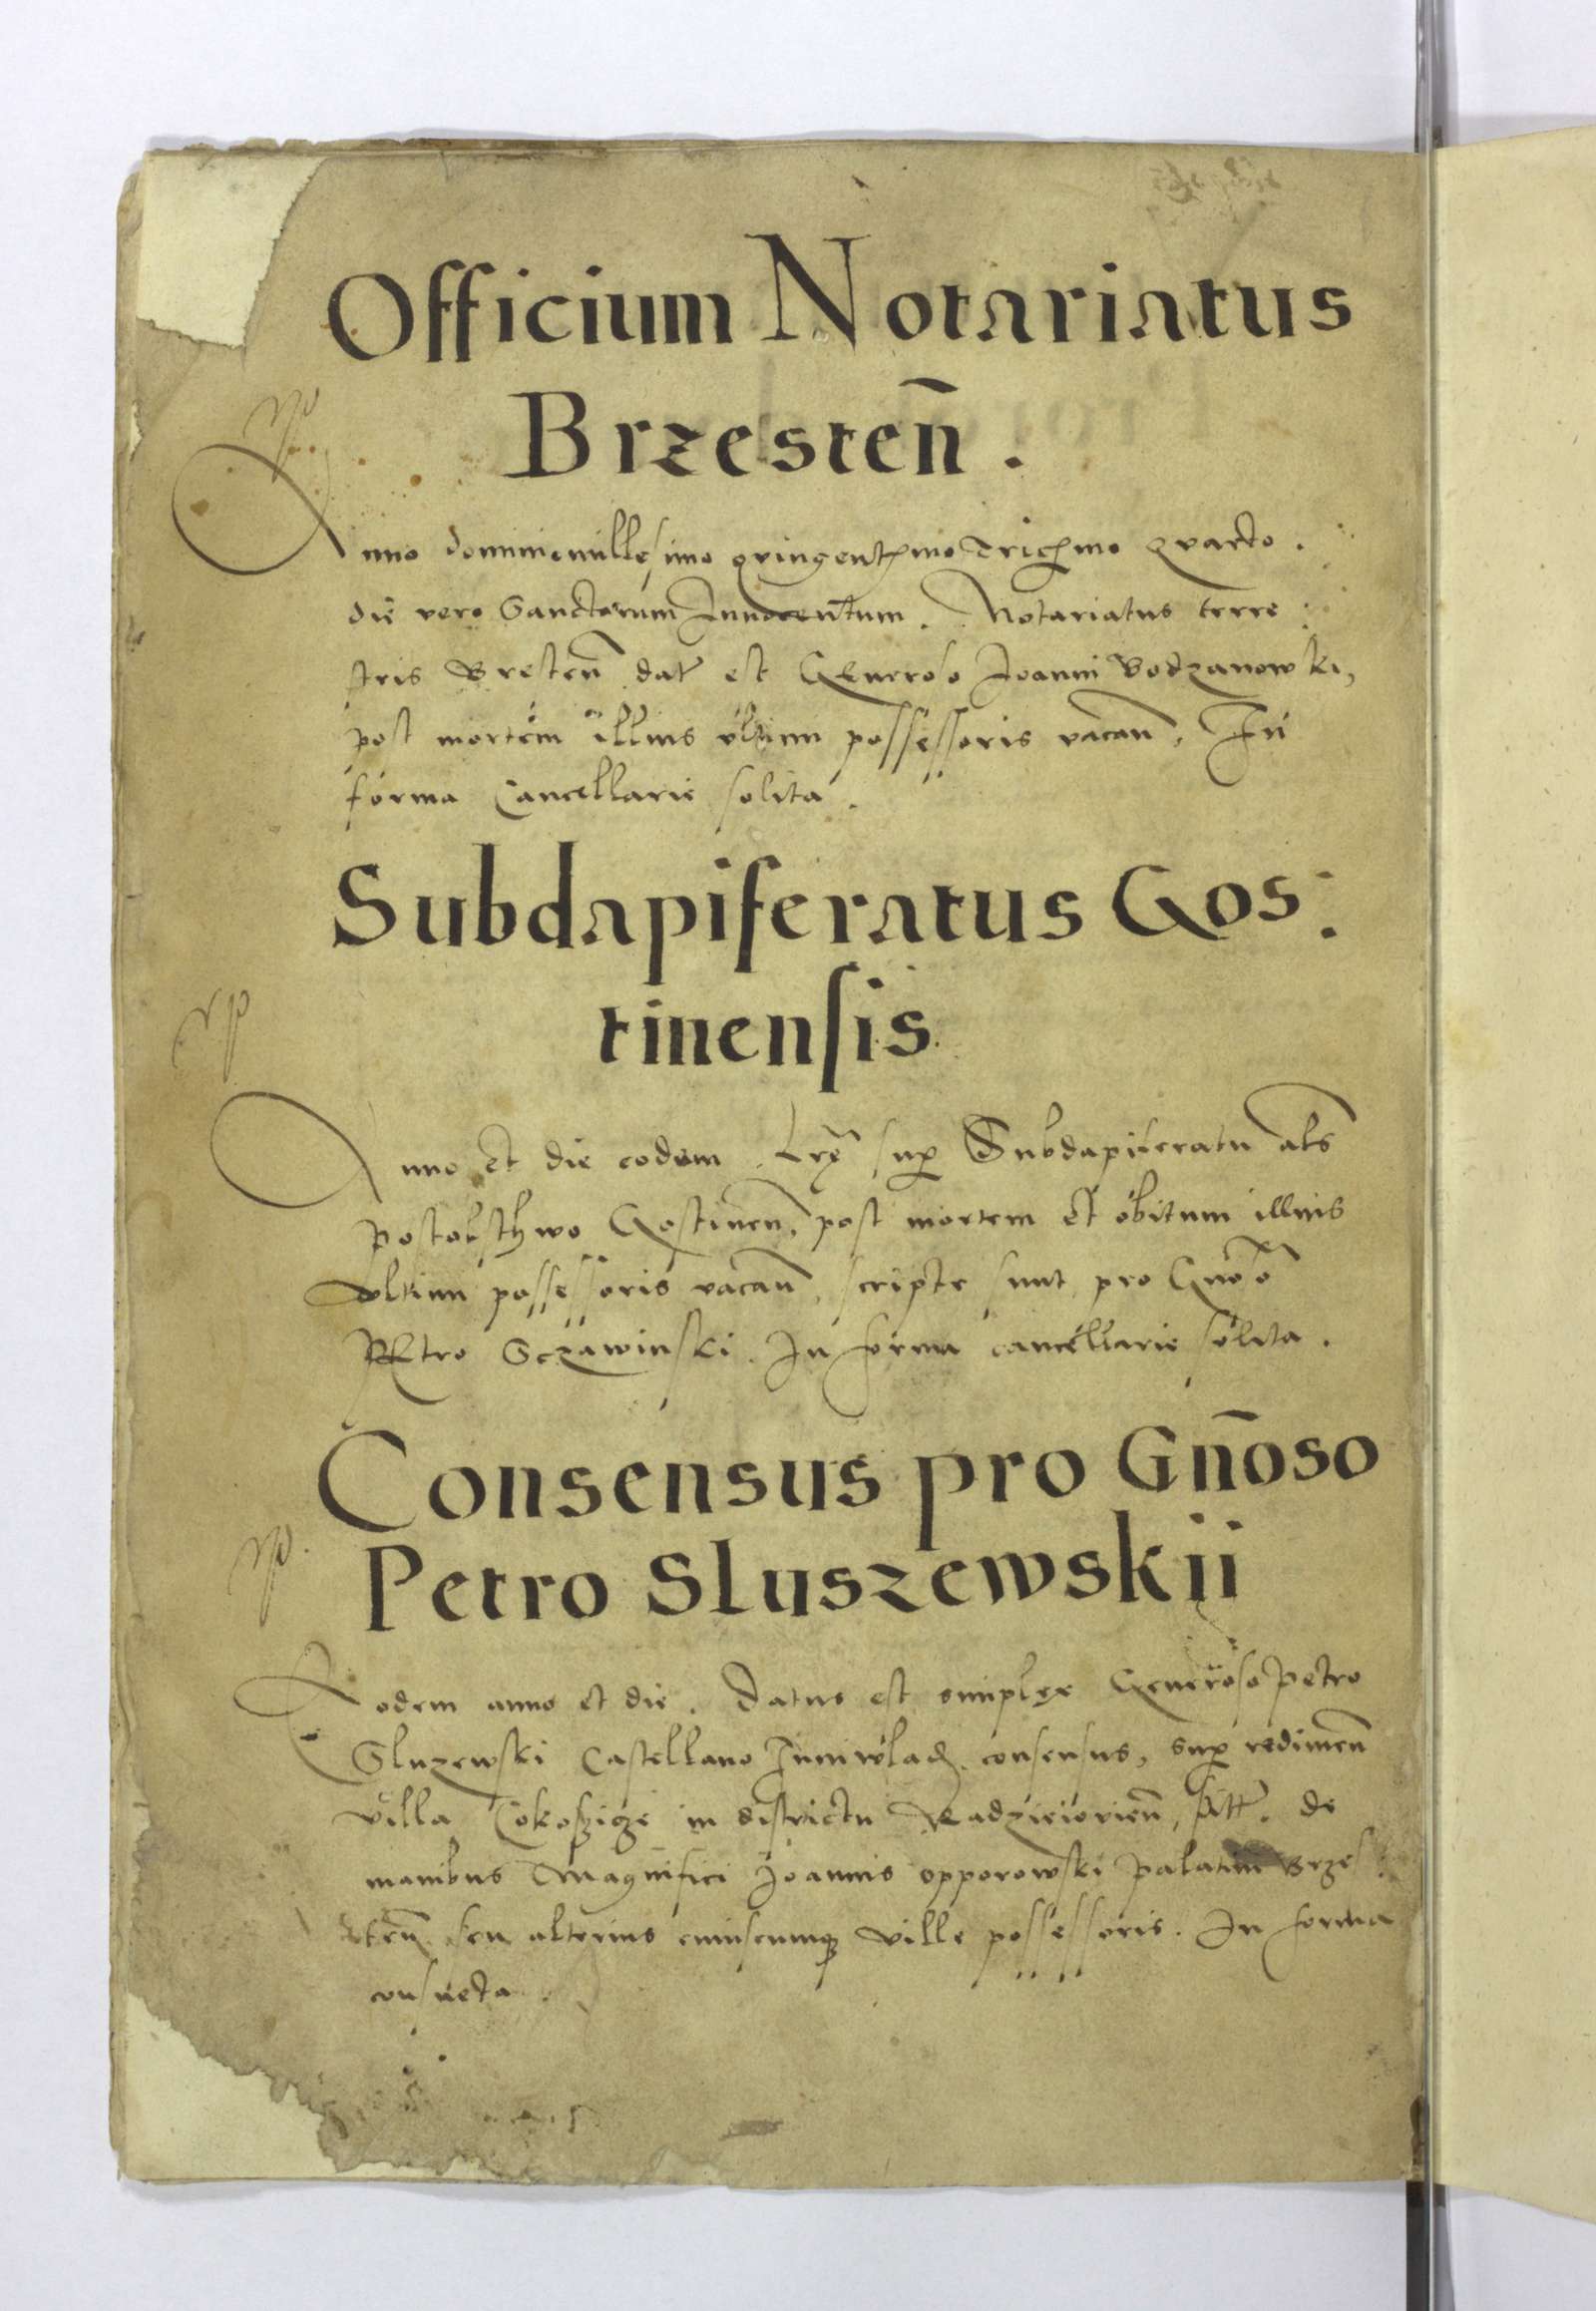 Officium Notariatus
Brzesteñ.
Anno domini millesimo qvingentesimo Tricesimo qvarto.
die vero Sanctorum Innocentum. Notariatus terre:
stris Bresteñ dat est Generoso Joanni Bodzanowski,
post mortem illius ultimi possessoris vacañ, In
forma Cancellarie solita.
Subdapiferatus Gos:
tinensis
Anno et die eodem Lrę sup Subdapiferatu als
Postolsthwo Gostineñ, post mortem et obitum illius
vltimi possessoris vacañ, scripte sunt pro Gnoso
PEtro Sczawinski. In forma cancellarie solita.
Consensus pro Gñoso
Petro Sluszewskii
Eodem anno et die. Datus est simplex Generoso Petro
Sluzewski Castellano Juniwlad. consensus, sup redimeñ
villa in districtu Radzieiovieñ, de
manibus Magnifici Joannis Opporowski Palatini Brzes:
teñ seu alterius cuiuscumq ville possessoris. In forma
consueta.